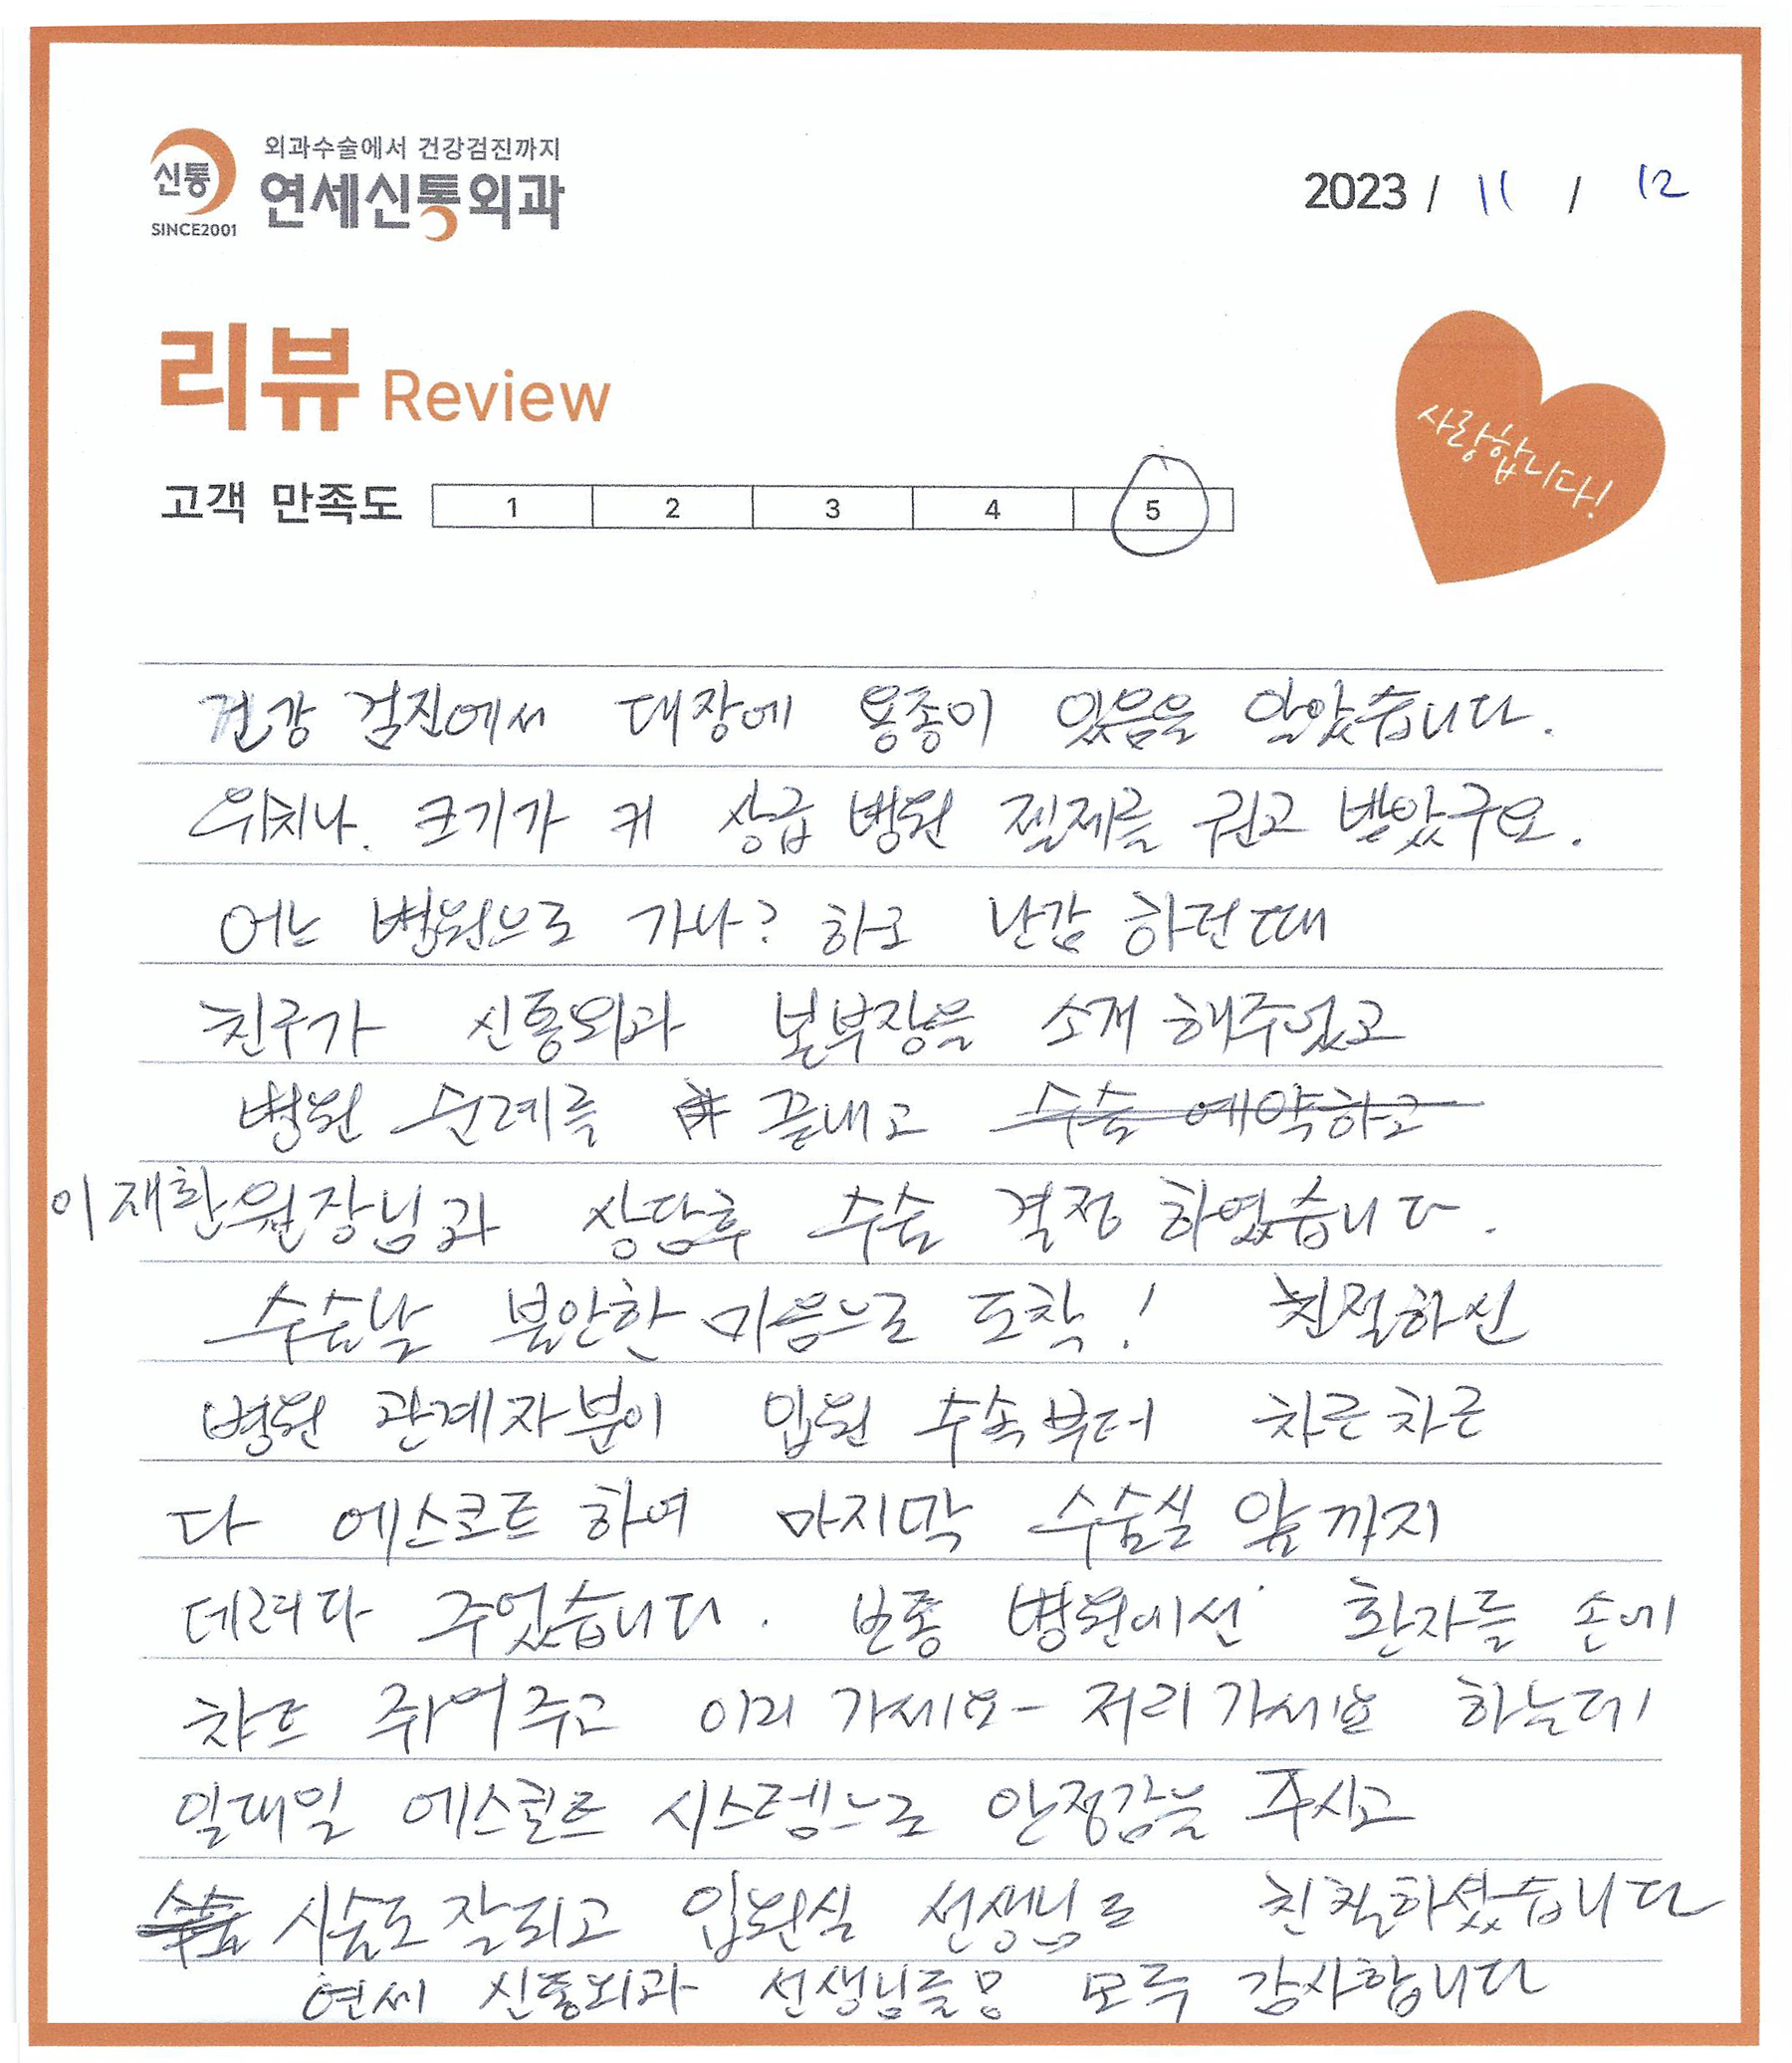 신통
SINCE2001
외과수술에서 건강검진까지
연세신통외과
2023 / 11 / 12
리뷰 Review
사랑합니다!
고객 만족도 1 2 3 4 5
건강 검진에서 대장에 용종이 있음을 알았습니다.
위치나. 크기가 커 상급 병원 절제를 권고 받았구요.
어느 병원으로 가나? 하고 난감 하던때
친구가 신통외과 본부장을 소개 해주었고
병원 순례를 끝내고 수술 예약하고
이재환원장님과 상담후 수술 결정 하였습니다.
수술날 불안한 마음으로 도착! 친절하신
병원 관계자분이 입원 수속부터 차근차근
다 에스코트 하여 마지막 수술실 앞까지
데려다 주었습니다. 보통 병원에선 환자를 손에
챠트 쥐어주고 이리 가세요- 저리 가세요 하는데
일대일 에스코트 시스템으로 안정감을 주시고
수술 시술도 잘되고 입원실 선생님도 친절하셨습니다
연세 신통외과 선생님들 모두 감사합니다